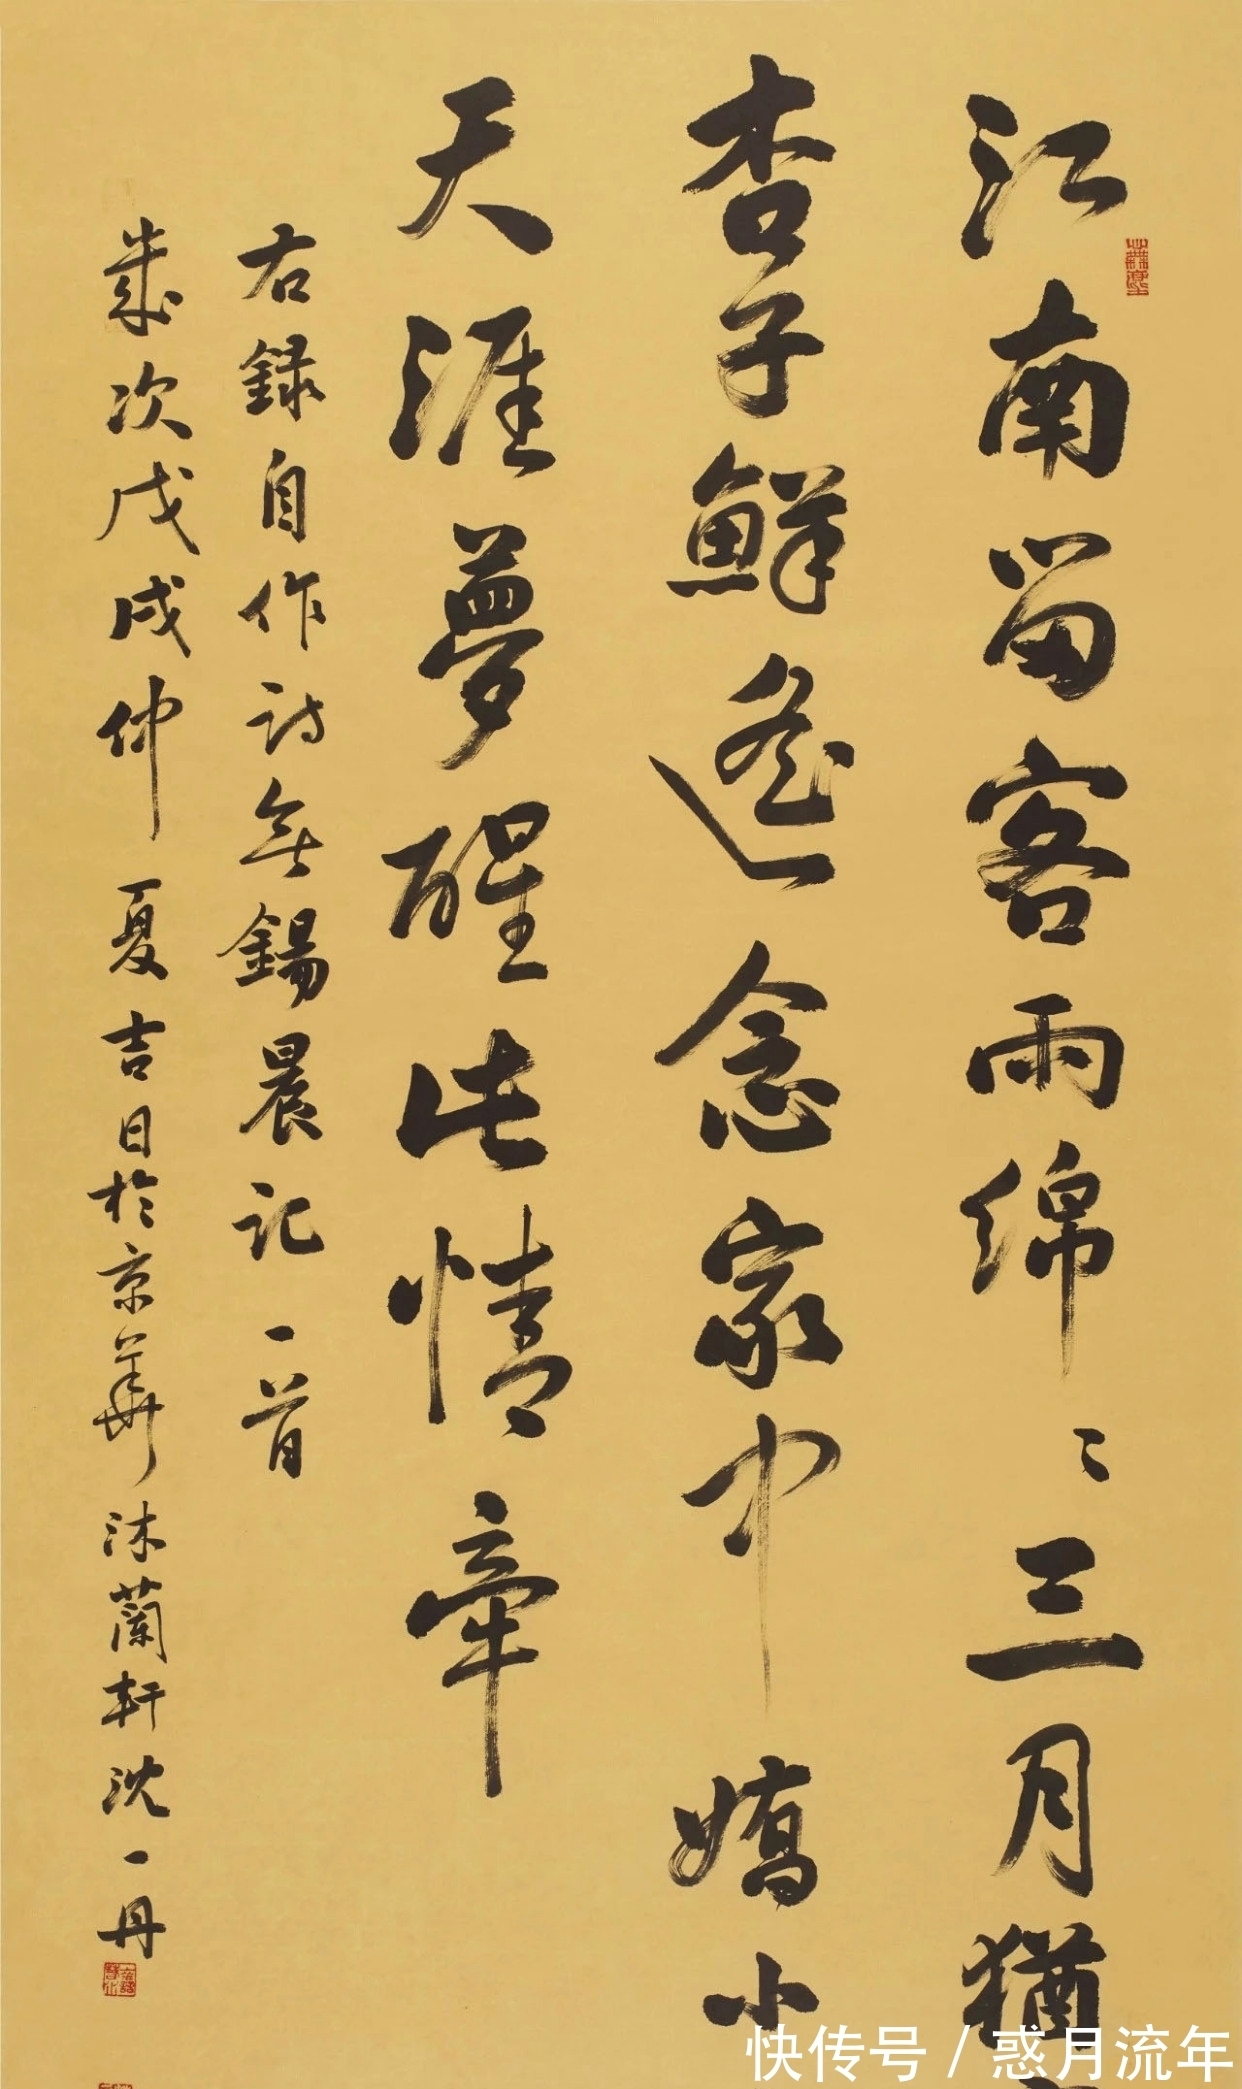 江南留客雨綿〻三月猶
杏子鮮遙念家中嬌小
天涯夢醒此情牽
右録自作詩無錫晨記一首
歲次戊戌仲夏吉日於京華沐蘭軒沈一丹
快传号/惑月流年